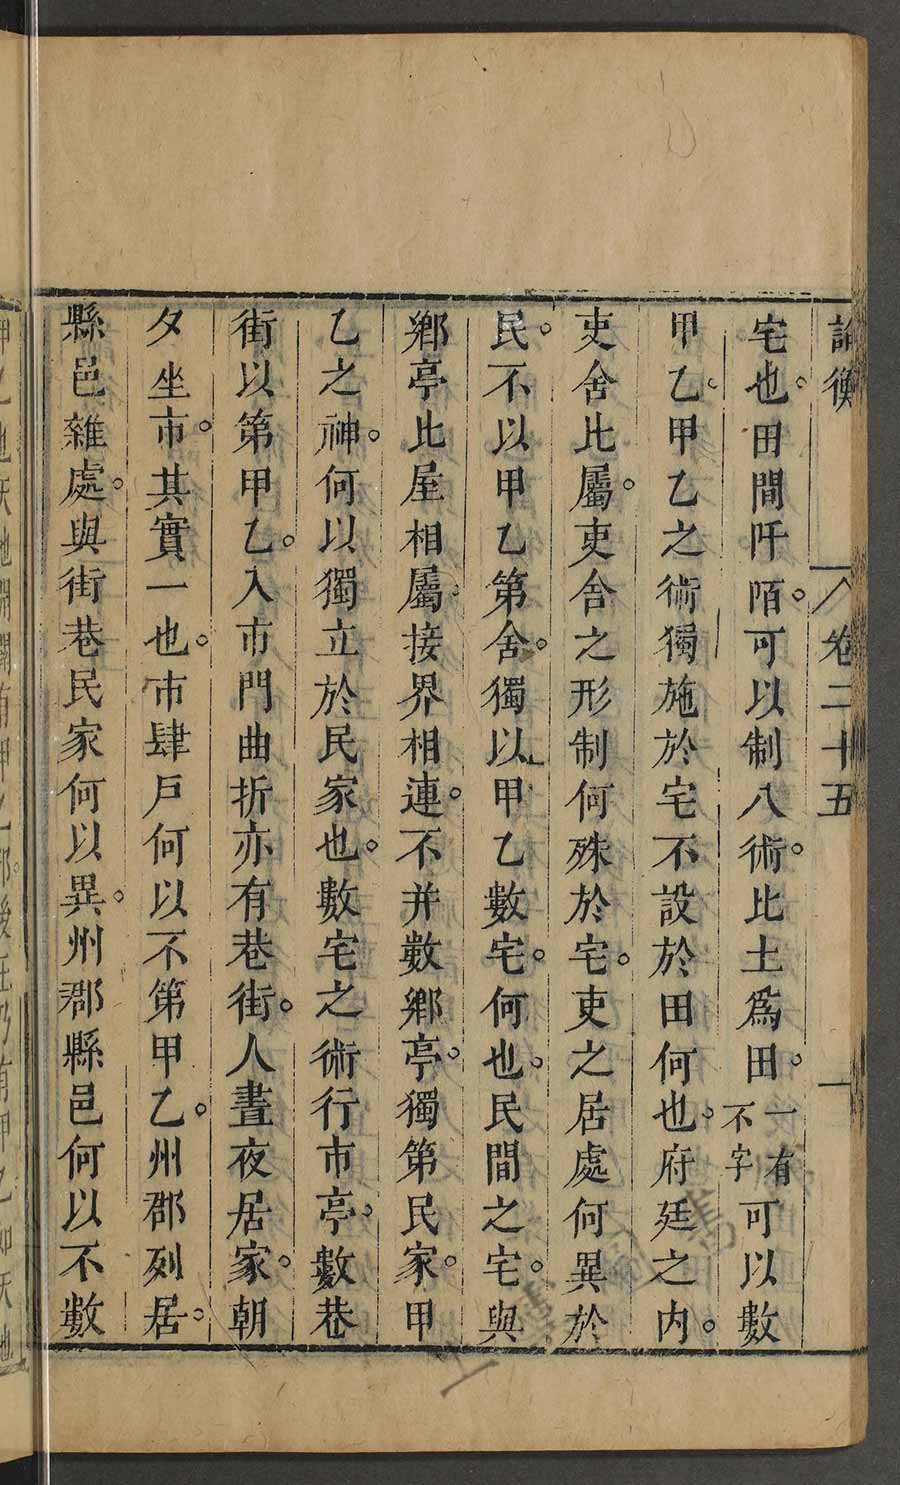 論衡 卷二十五 一
宅也。田間阡陌。可以制八術。比土為田。一有不字可以數
甲乙。甲乙之術獨施於宅不設於田何也。府廷之內。
吏舍比屬。吏舍之形制何殊於宅。吏之居處何異於
民。不以甲乙第舍。獨以甲乙數宅。何也。民間之宅。與
鄉亭比屋相屬。接界相連。不并數鄉亭。獨第民家。甲
乙之神。何以獨立於民家也。數宅之術行市亭。數巷
街以第甲乙。入市門曲折亦有巷街。人晝夜居家。朝
夕坐市。其實一也。市肆戶何以不第甲乙。州郡列居。
縣邑雜處。與街巷民家何以異。州郡縣邑何以不數